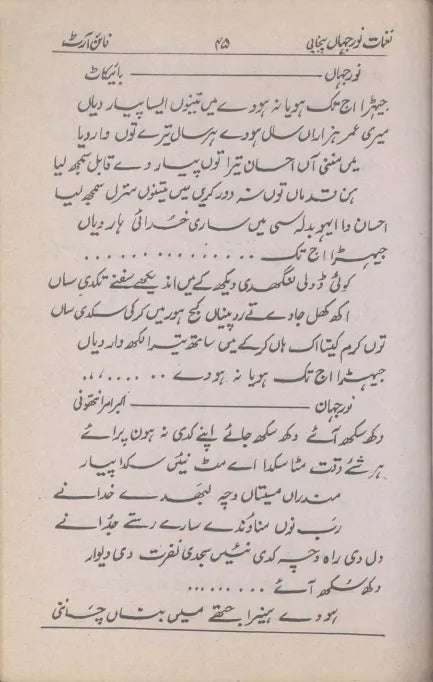 نغمات نورجہاں پنجابی ۴۵ نائن آرٹ
نورجہاں ——— بائیکاٹ
جیہڑا اج تک ہویا نہ ہووے میں تینوں ایسا پیار دیاں
میری عمر ہزاراں سال ہووے ہر سال تیرے توں وار دیا
میں منی آں احسان تیرا توں پیار دے قابل سمجھ لیا
ہن قدماں توں نہ دور کریں میں تینوں منزل سمجھ لیا
احسان دا ایہو بدلہ سی میں ساری خدائی ہار دیاں
جیہڑا اج تک . . . . . . . . . . . . . . .
کوئی ڈولی لنگھدی ویکھ کے میں سفنے تکدی ساں
اکھ کھل جاوے تے رو پیناں کج ہور میں کر کی سکدی ساں
توں کرم کیتا اک ہاں کر کے میں ساتھ تیرا لکھ وار دیاں
جیہڑا اج تک ہویا نہ ہووے . . . . . . .
نورجہان ———
دکھ سکھ آئے دکھ سکھ جائے اپنے کدی نہ ہون پرائے
ہر شئے وقت مٹا سکدا اے مٹ نیئں سکدا پیار
مندراں میتاں وچہ لبھدے خدا نے
رب نوں مناؤندے سارے رستے جدا نے
دل دی راہ وچہ کدی نئیں سجدی نفرت دی دیوار
دکھ سکھ آئے . . . . . . . . .
ہووے ہنیرا جتھے میں بناں چاننی